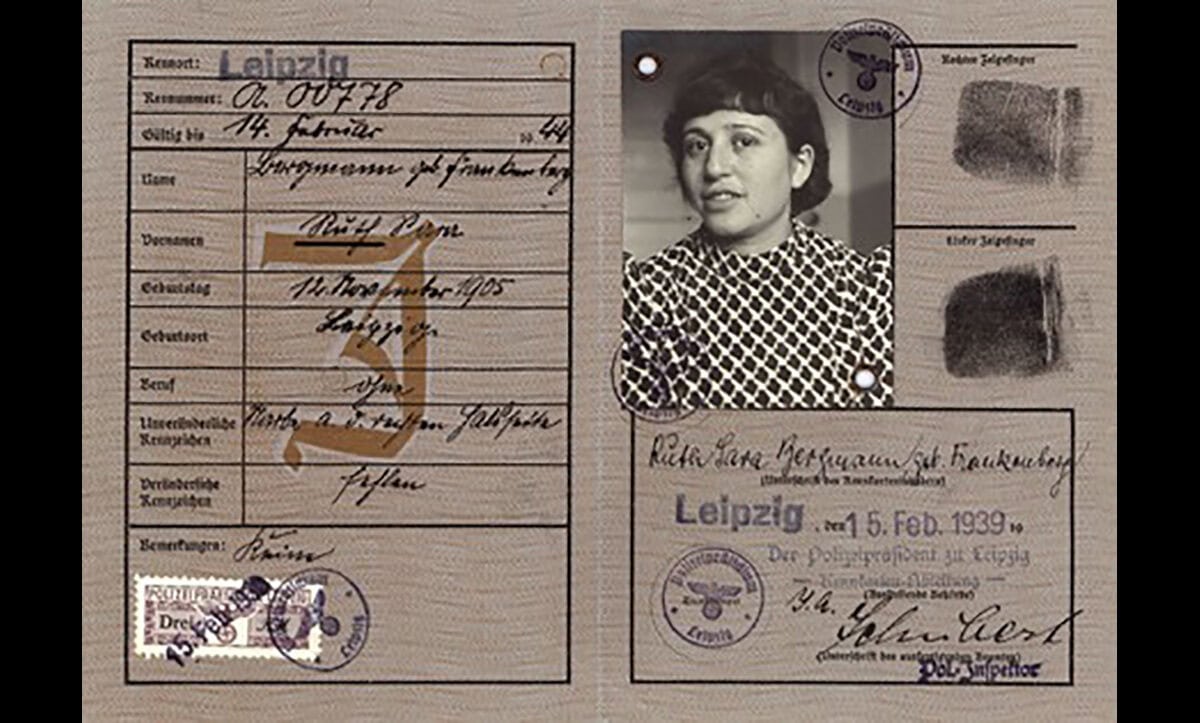 Kennort: Leipzig
Kennummer: A. 00778
Gültig bis 14. Februar 19 44
Name Bergmann geb Frankenberg
Vornamen Ruth Sara
J
Geburtstag 12. November 1905
Geburtsort Leipzig
Beruf ohne
Unveränderliche Kennzeichen Narbe a. d. rechten Halsseite
Veränderliche Kennzeichen fehlen
Bemerkungen: Keine
Drei
15. Feb. 1939
Leipzig
Polizeipräsidium
Leipzig
Rechter Zeigefinger
Linker Zeigefinger
Ruth Sara Bergmann geb. Frankenberg
(Unterschrift des Kennkarteninhabers)
Leipzig, den 15. Feb. 1939 19
Der Polizeipräsident zu Leipzig
— Kennkarten-Abteilung —
(Ausstellende Behörde)
Polizeipräsidium
Leipzig
I. A. Schubert
(Unterschrift des ausfertigenden Beamten)
Pol.-Inspektor